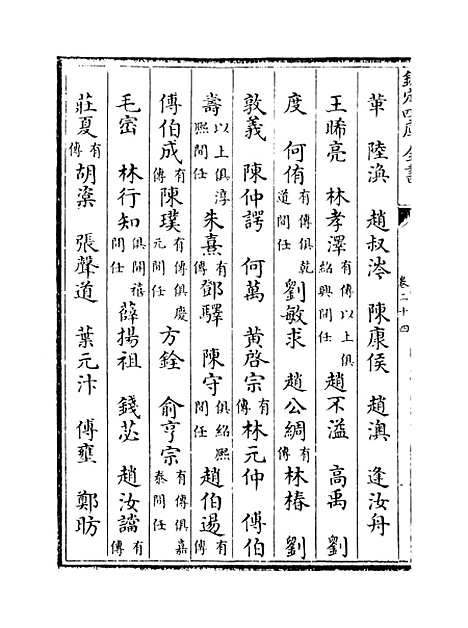 欽定四庫全書
卷二十四
華 陸渙 趙叔涔 陳康侯 趙澳 逢汝舟
王晞亮 林孝澤有傳以上俱紹興間任 趙不溢 高禹 劉
度 何侑有傳俱乾道間任 劉敏求 趙公綢有傳 林椿 劉
敦義 陳仲諤 何萬 黄啓宗有傳 林元仲 傅伯
壽以上俱淳熙間任 朱熹有傳 鄧驛 陳守俱紹熙間任 趙伯逷有傳
傅伯成有傳 陳璞有傳俱慶元間任 方銓 俞亨宗有傳俱嘉泰間任
毛密 林行知俱開禧間任 薛揚祖 錢苾 趙汝讜有傳
莊夏有傳 胡 張聲道 葉元汴 傅壅 鄭昉